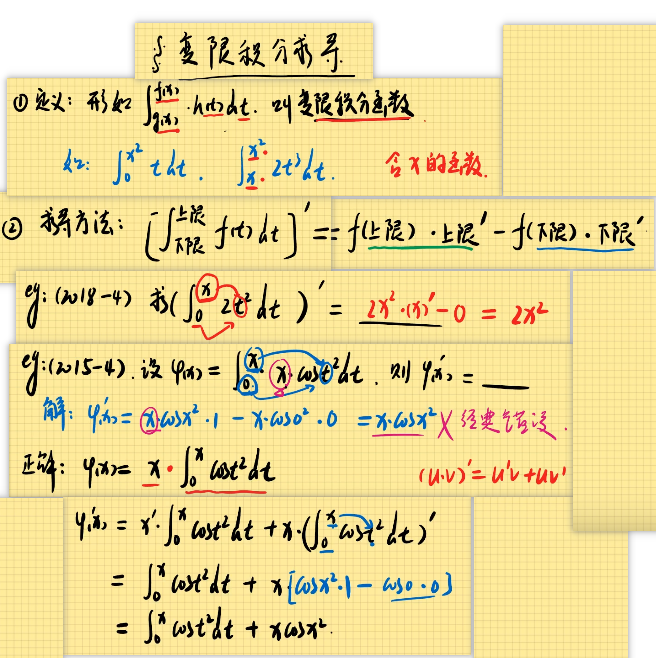 § 变限积分求导
① 定义: 形如 ∫_{g(x)}^{f(x)} · h(t) dt. 叫变限积分函数.
如: ∫_0^{x²} t dt. ∫_x^{x²} 2t² dt. 含x的函数.
② 求导方法: [∫_{下限}^{上限} f(t) dt]' == f(上限)·上限' - f(下限)·下限'
eg: (2018-4) 求(∫_0^x 2t² dt)' = 2x²·(x)' - 0 = 2x²
eg: (2015-4). 设 φ(x) = ∫_0^x x·cost² dt. 则 φ'(x) = ___
解: φ'(x) = x·cosx²·1 - x·cos0²·0 = x·cosx² X 经典错误.
正解: φ(x) = x·∫_0^x cost² dt (u·v)' = u'v + uv'
φ'(x) = x'·∫_0^x cost² dt + x·(∫_0^x cost² dt)'
= ∫_0^x cost² dt + x[cosx²·1 - cos0·0]
= ∫_0^x cost² dt + xcosx².